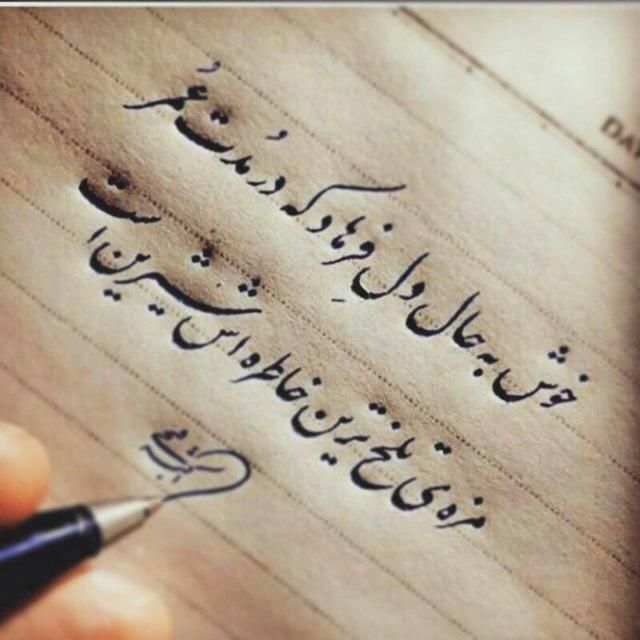 خوش به حال دل فرهاد که در مدت عُمر
مزه ی تلخ ترین خاطره اش شیرین است
DAT